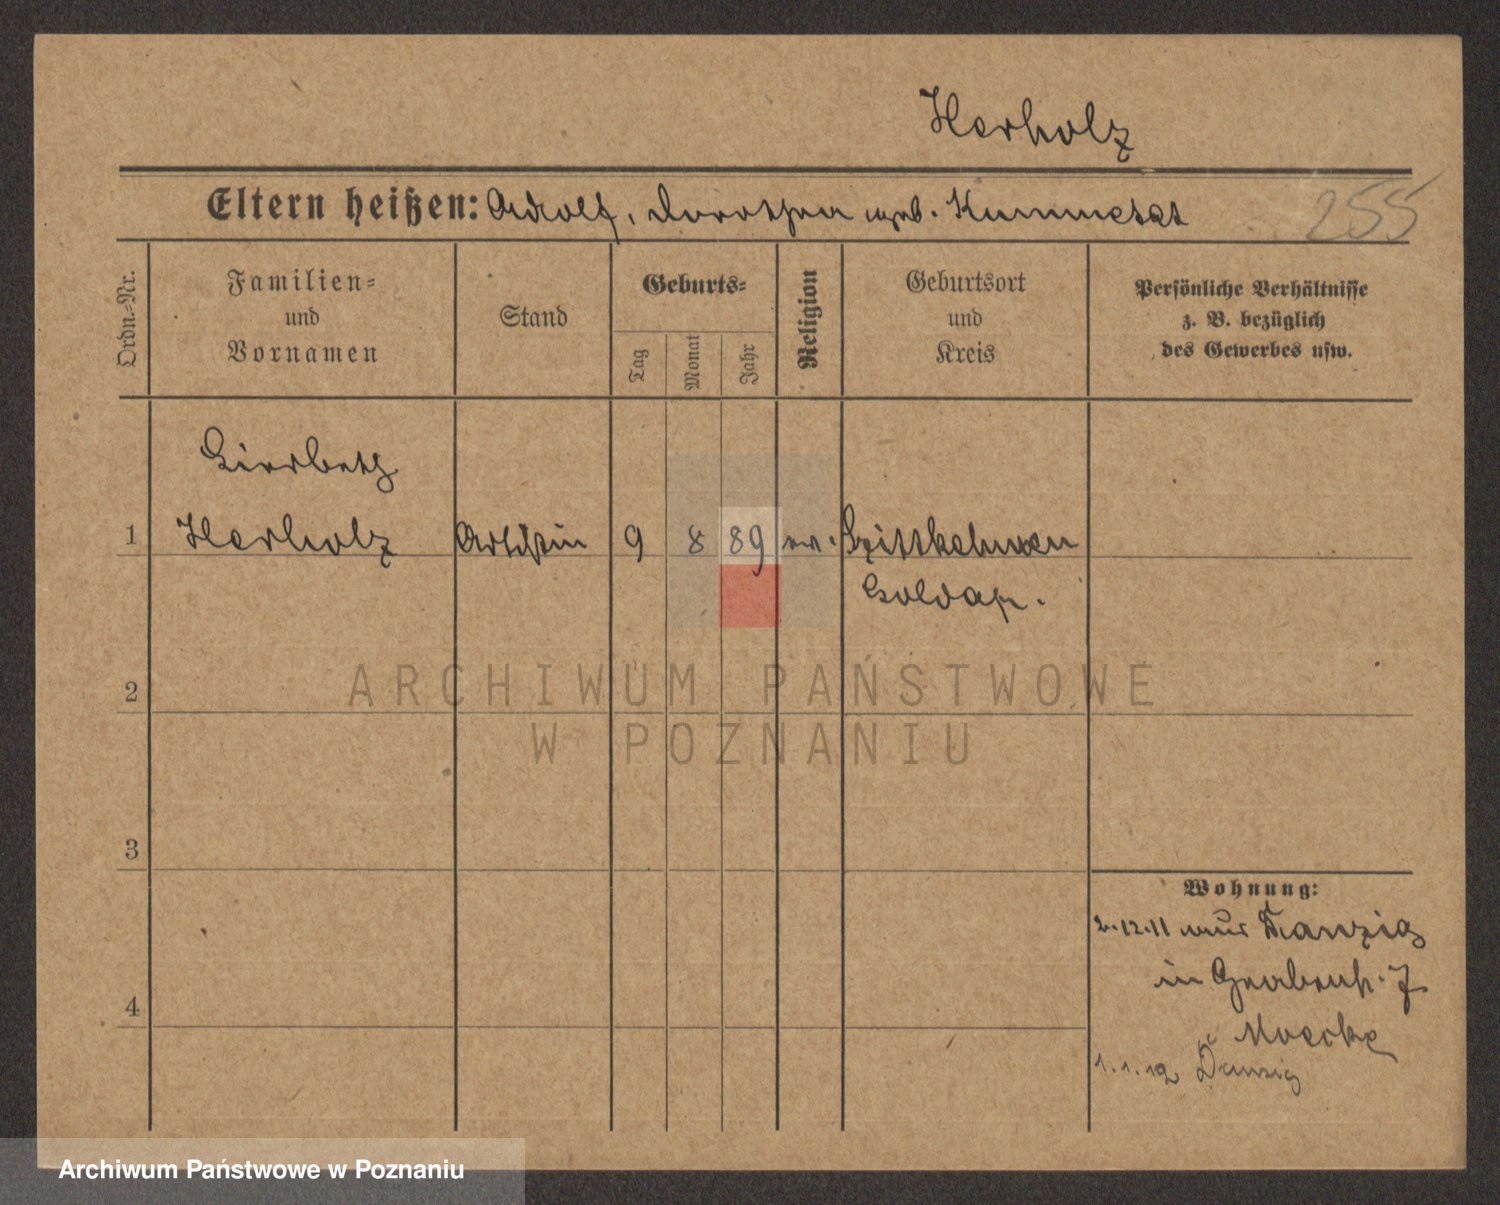 Herholz
Eltern heißen: Adolf, Dorothea geb. Kummetat
255
Ordn.-Nr.
Familien-
und
Vornamen
Stand
Geburts-
Tag
Monat
Jahr
Religion
Geburtsort
und
Kreis
Persönliche Verhältnisse
z. B. bezüglich
des Gewerbes usw.
1
Lisbeth
Herholz
Artistin
9
8
89
ev.
Szittkehmen
Goldap.
2
3
4
Wohnung:
2.12.11 aus Danzig
in Grabenstr. 7
Moecke
1.1.12 Danzig
ARCHIWUM PAŃSTWOWE
W POZNANIU
Archiwum Państwowe w Poznaniu